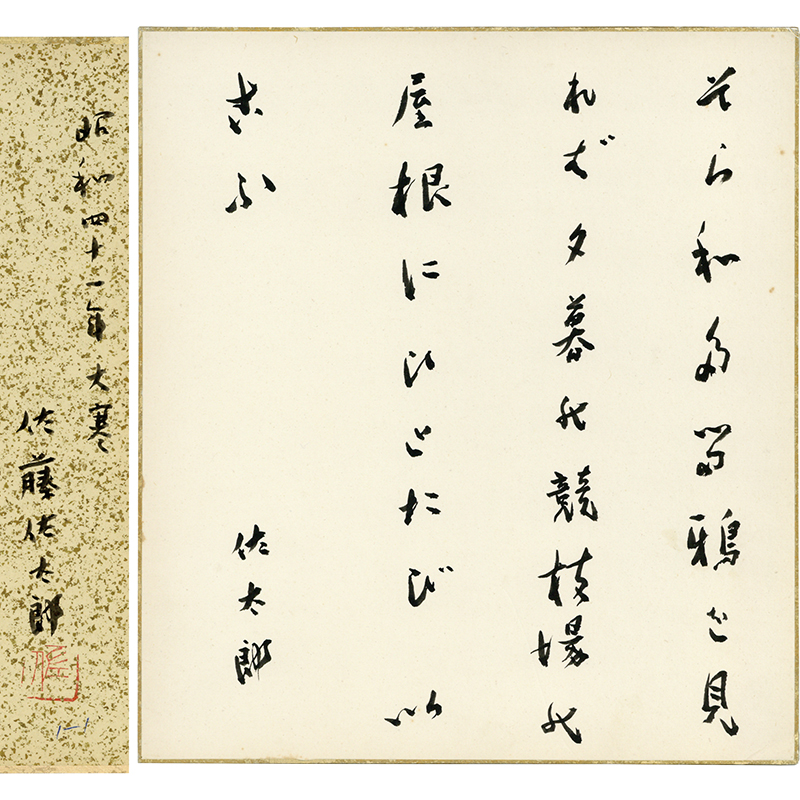 そら和多留鴉を見
れば夕暮能競技場能
屋根にひとたび以
古ふ
佐太郎
昭和四十一年大寒
佐藤佐太郎
1-1